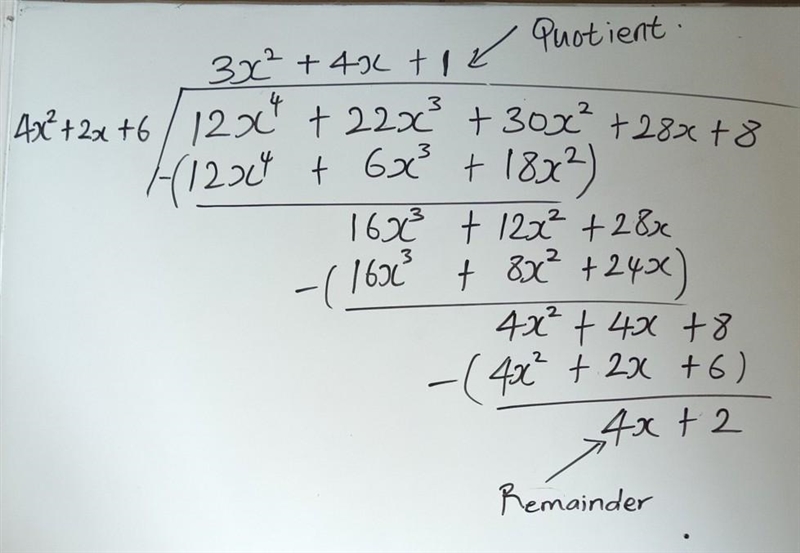 Quotient.
3x² + 4x + 1
4x²+2x+6 12x⁴ + 22x³ + 30x² + 28x + 8
-(12x⁴ + 6x³ + 18x²)
16x³ + 12x² + 28x
-(16x³ + 8x² + 24x)
4x² + 4x + 8
-(4x² + 2x + 6)
4x + 2
Remainder